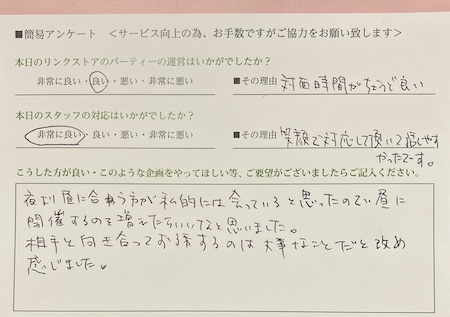 ■簡易アンケート ＜サービス向上の為、お手数ですがご協力をお願い致します＞
本日のリンクストアのパーティーの運営はいかがでしたか？
非常に良い・良い・悪い・非常に悪い
■その理由 対面時間がちょうど良い
本日のスタッフの対応はいかがでしたか？
非常に良い・良い・悪い・非常に悪い
■その理由 笑顔で対応して頂いて話しやす
かったでーす。
こうした方が良い・このような企画をやってほしい等、ご要望がございましたらご記入ください。
夜より昼に合わう方が私的には合っていると思ったので、昼に
開催するのを増えたらいいなと思いました。
相手と向き合ってお話するのは大事なことだと改め
感じました。